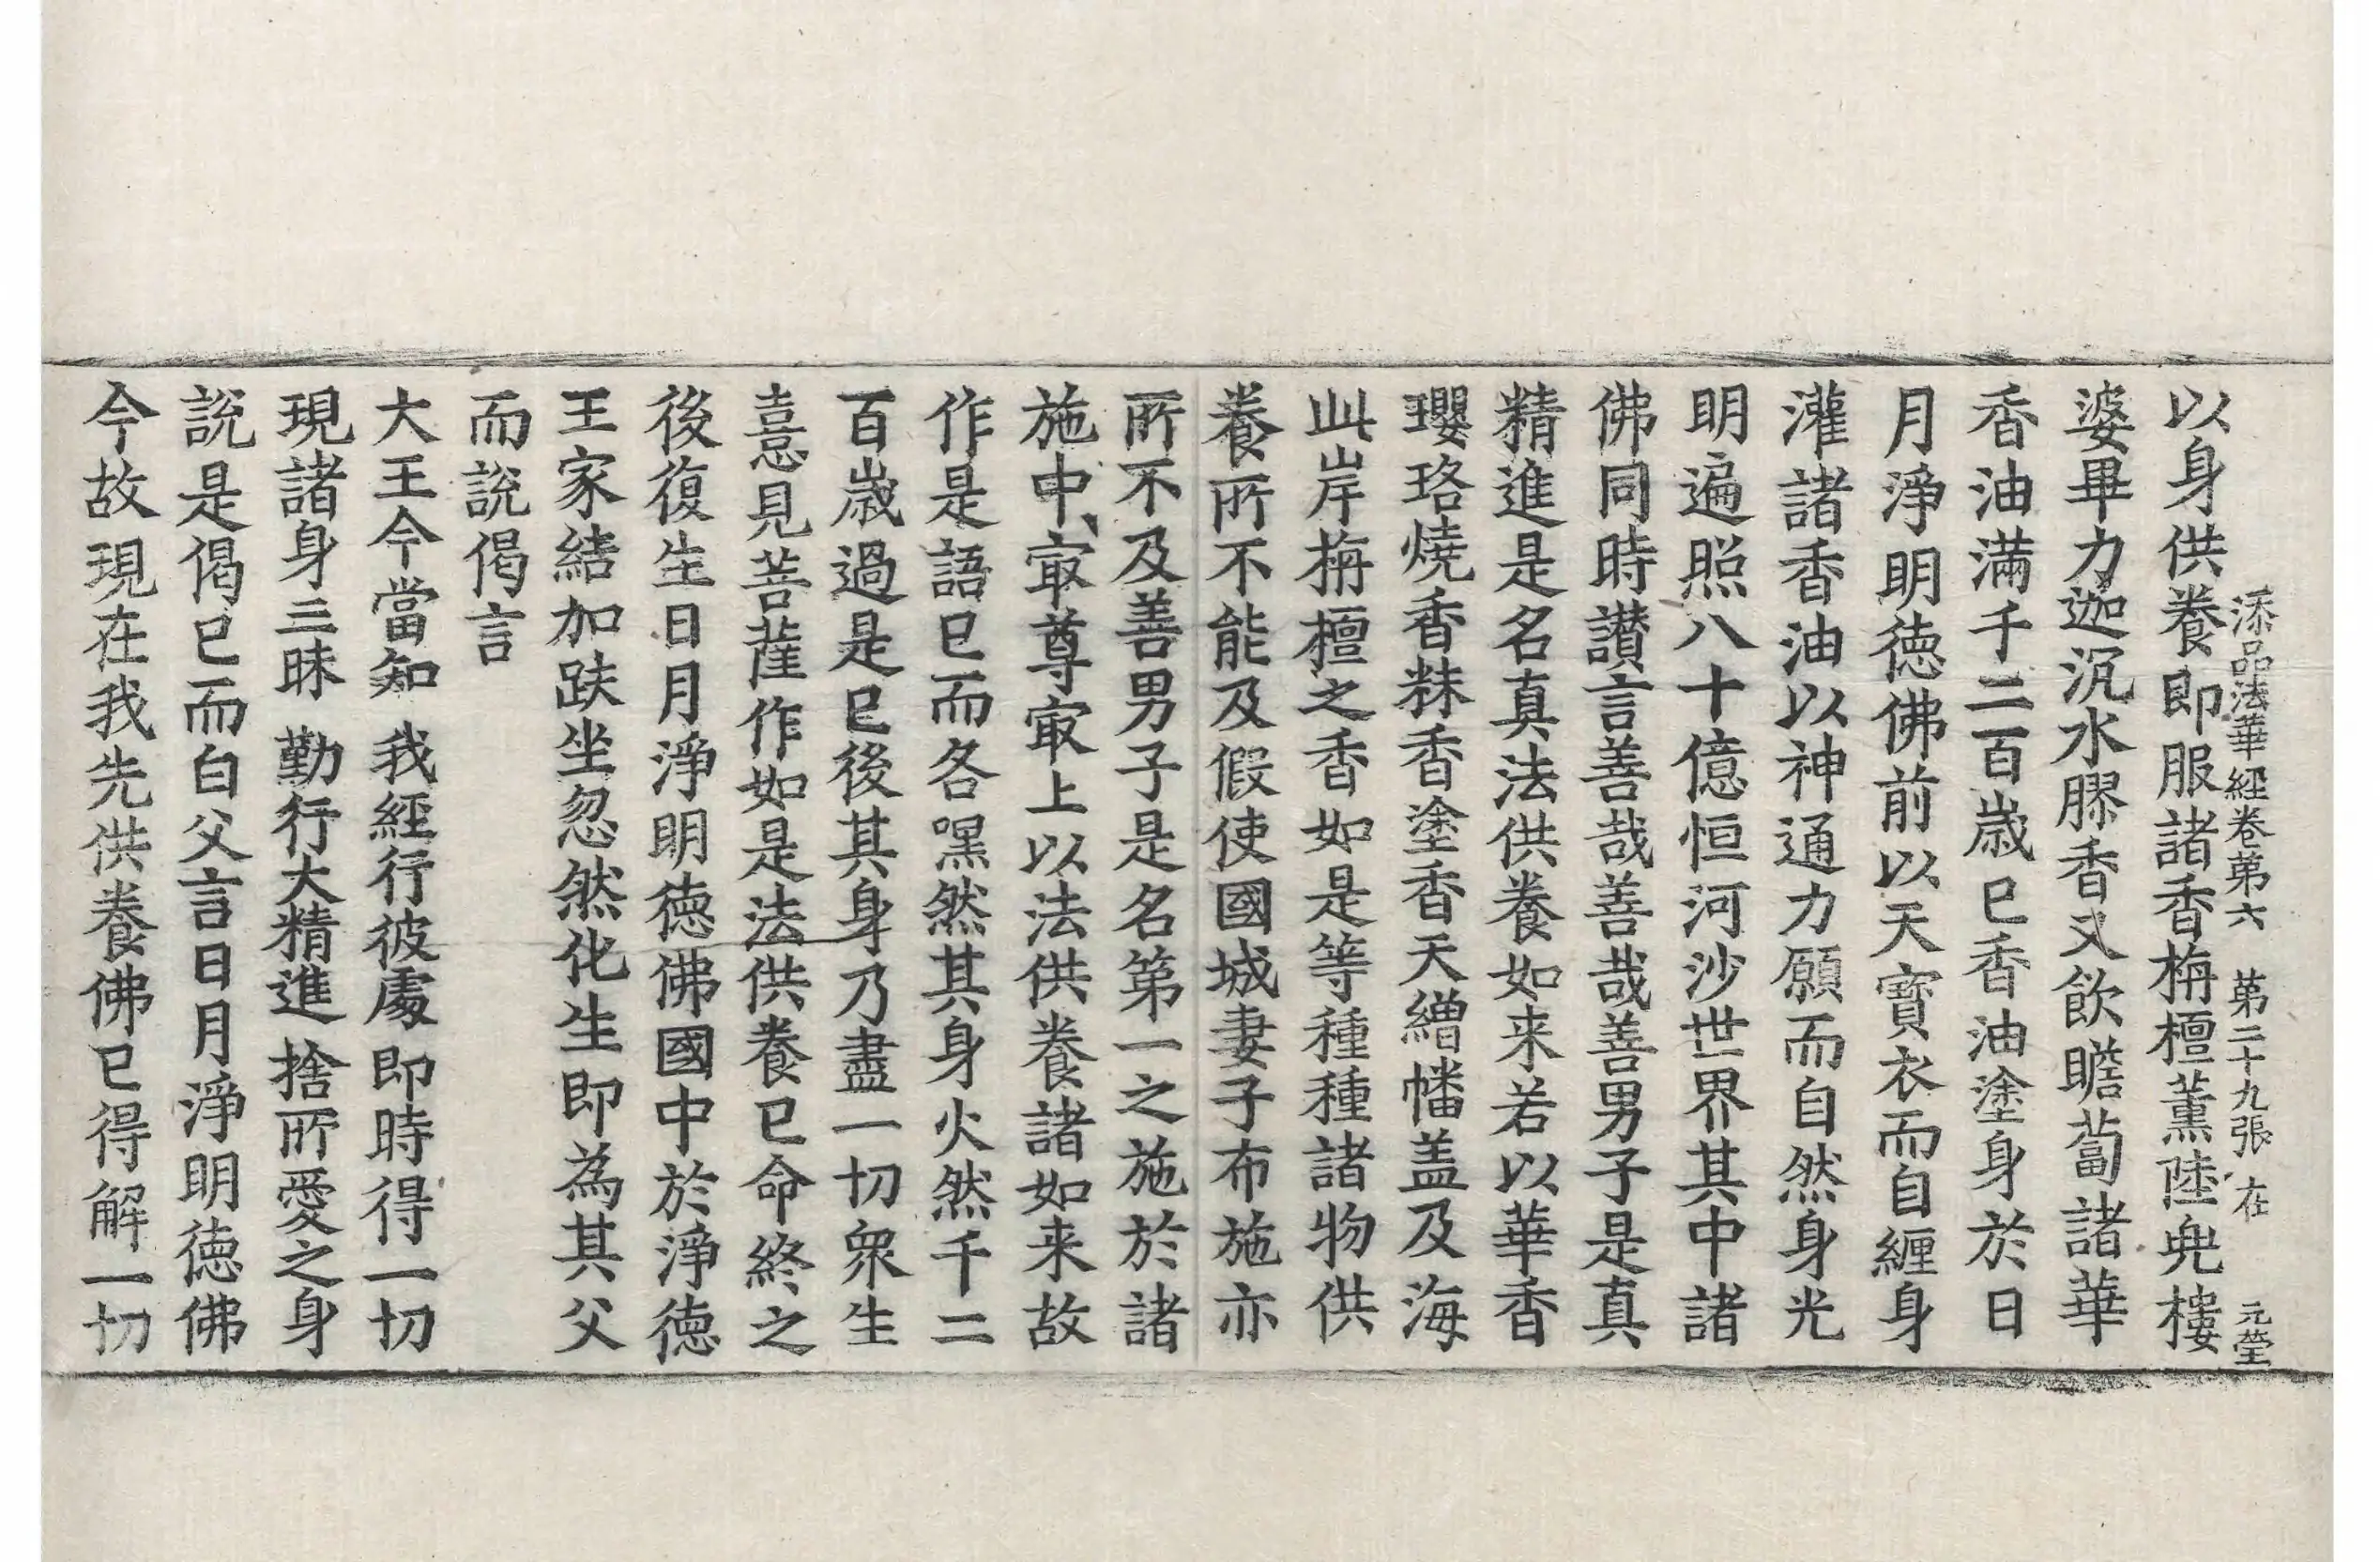 添品法華經卷第六 第二十九張 在 元瑩
以身供養即服諸香栴檀薰陸兜樓
婆畢力迦沉水膠香又飲瞻蔔諸華
香油滿千二百歲已香油塗身於日
月淨明德佛前以天寶衣而自纏身
灌諸香油以神通力願而自然身光
明遍照八十億恒河沙世界其中諸
佛同時讃言善哉善哉善男子是真
精進是名真法供養如来若以華香
瓔珞燒香粖香塗香天繒幡盖及海
此岸栴檀之香如是等種種諸物供
養所不能及假使國城妻子布施亦
所不及善男子是名第一之施於諸
施中㝡尊㝡上以法供養諸如来故
作是語已而各嘿然其身火然千二
百歲過是已後其身乃盡一切衆生
憙見菩薩作如是法供養已命終之
後復生日月淨明德佛國中於淨德
王家結加趺坐忽然化生即為其父
而說偈言
大王今當知 我經行彼處 即時得一切
現諸身三昧 勤行大精進 捨所愛之身
說是偈已而白父言日月淨明德佛
今故現在我先供養佛已得解一切